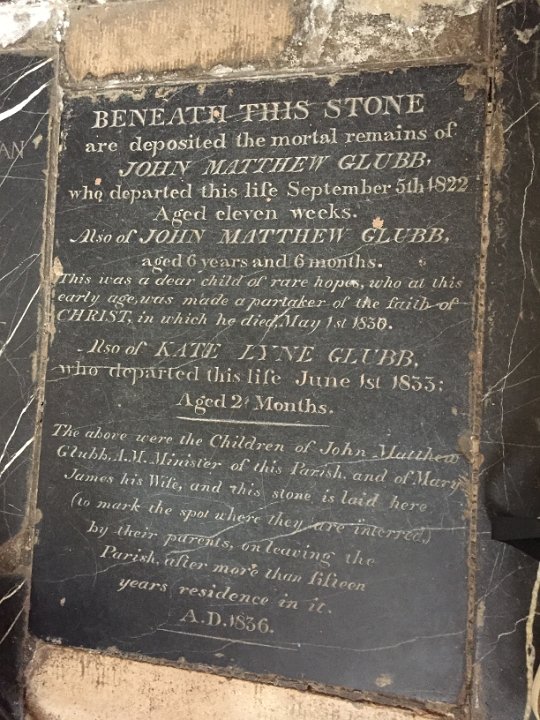 BENEATH THIS STONE
are deposited the mortal remains of
JOHN MATTHEW GLUBB,
who departed this life September 5th 1822
Aged eleven weeks.
Also of JOHN MATTHEW GLUBB,
aged 6 years and 6 months.
This was a dear child of rare hopes, who at this
early age, was made a partaker of the faith of
CHRIST, in which he died, May 1st 1830.
Also of KATE LYNE GLUBB,
who departed this life June 1st 1833;
Aged 21 Months.
The above were the Children of John Matthew
Glubb, A.M. Minister of this Parish, and of Mary
James his Wife, and this stone is laid here
(to mark the spot where they are interred,)
by their parents, on leaving the
Parish, after more than fifteen
years residence in it.
A.D. 1836.
AN